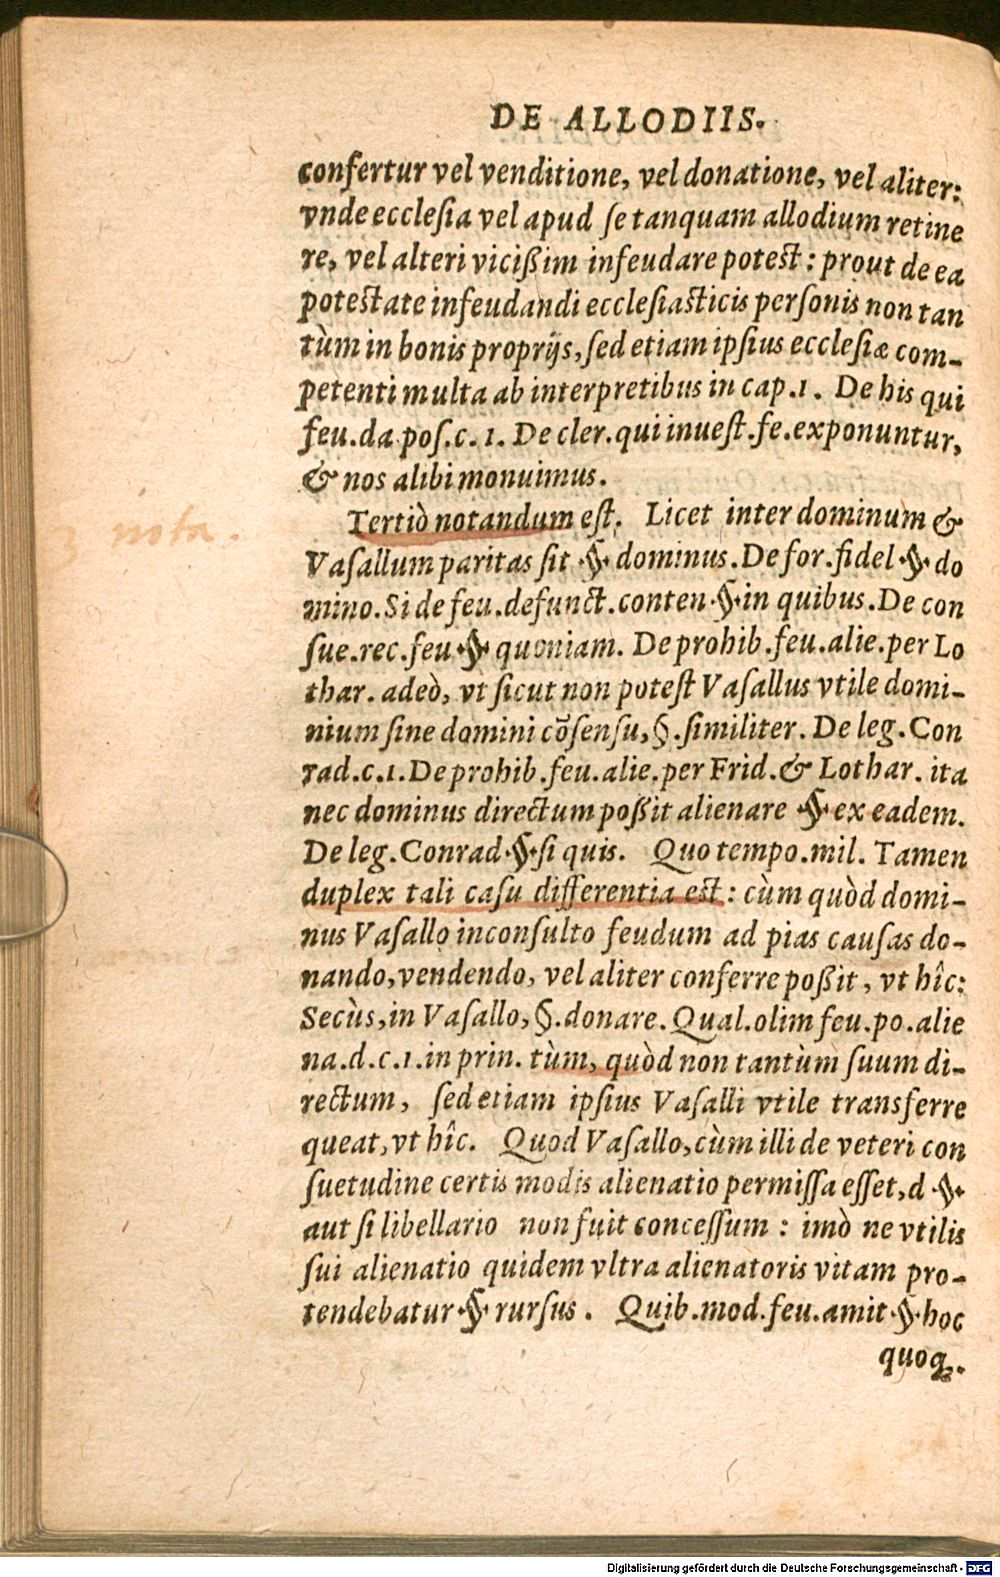 DE ALLODIIS.
confertur vel venditione, vel donatione, vel aliter:
vnde ecclesia vel apud se tanquam allodium retine
re, vel alteri vicißim infeudare potest: prout de ea
potestate infeudandi ecclesiasticis personis non tan
tùm in bonis proprijs, sed etiam ipsius ecclesiæ com-
petenti multa ab interpretibus in cap. 1. De his qui
feu. da pos. c. 1. De cler. qui inuest. fe. exponuntur,
& nos alibi monuimus.
3 nota.
Tertiò notandum est. Licet inter dominum &
Vasallum paritas sit §. dominus. De for. fidel §. do
mino. Si de feu. defunct. conten. §. in quibus. De con
sue. rec. feu §. quoniam. De prohib. feu. alie. per Lo
thar. adeò, vt sicut non potest Vasallus vtile domi-
nium sine domini cõsensu, §. similiter. De leg. Con
rad. c. 1. De prohib. feu. alie. per Frid. & Lothar. ita
nec dominus directum poßit alienare §. ex eadem.
De leg. Conrad §. si quis. Quo tempo. mil. Tamen
duplex tali casu differentia est: cùm quòd domi-
nus Vasallo inconsulto feudum ad pias causas do-
nando, vendendo, vel aliter conferre poßit, vt hîc:
Secùs, in Vasallo, §. donare. Qual. olim feu. po. alie
na. d. c. 1. in prin. tùm, quòd non tantùm suum di-
rectum, sed etiam ipsius Vasalli vtile transferre
queat, vt hîc. Quod Vasallo, cùm illi de veteri con
suetudine certis modis alienatio permissa esset, d §.
aut si libellario non fuit concessum: imò ne vtilis
sui alienatio quidem vltra alienatoris vitam pro-
tendebatur §. rursus. Quib. mod. feu. amit §. hoc
quoq.
Digitalisierung gefördert durch die Deutsche Forschungsgemeinschaft - DFG